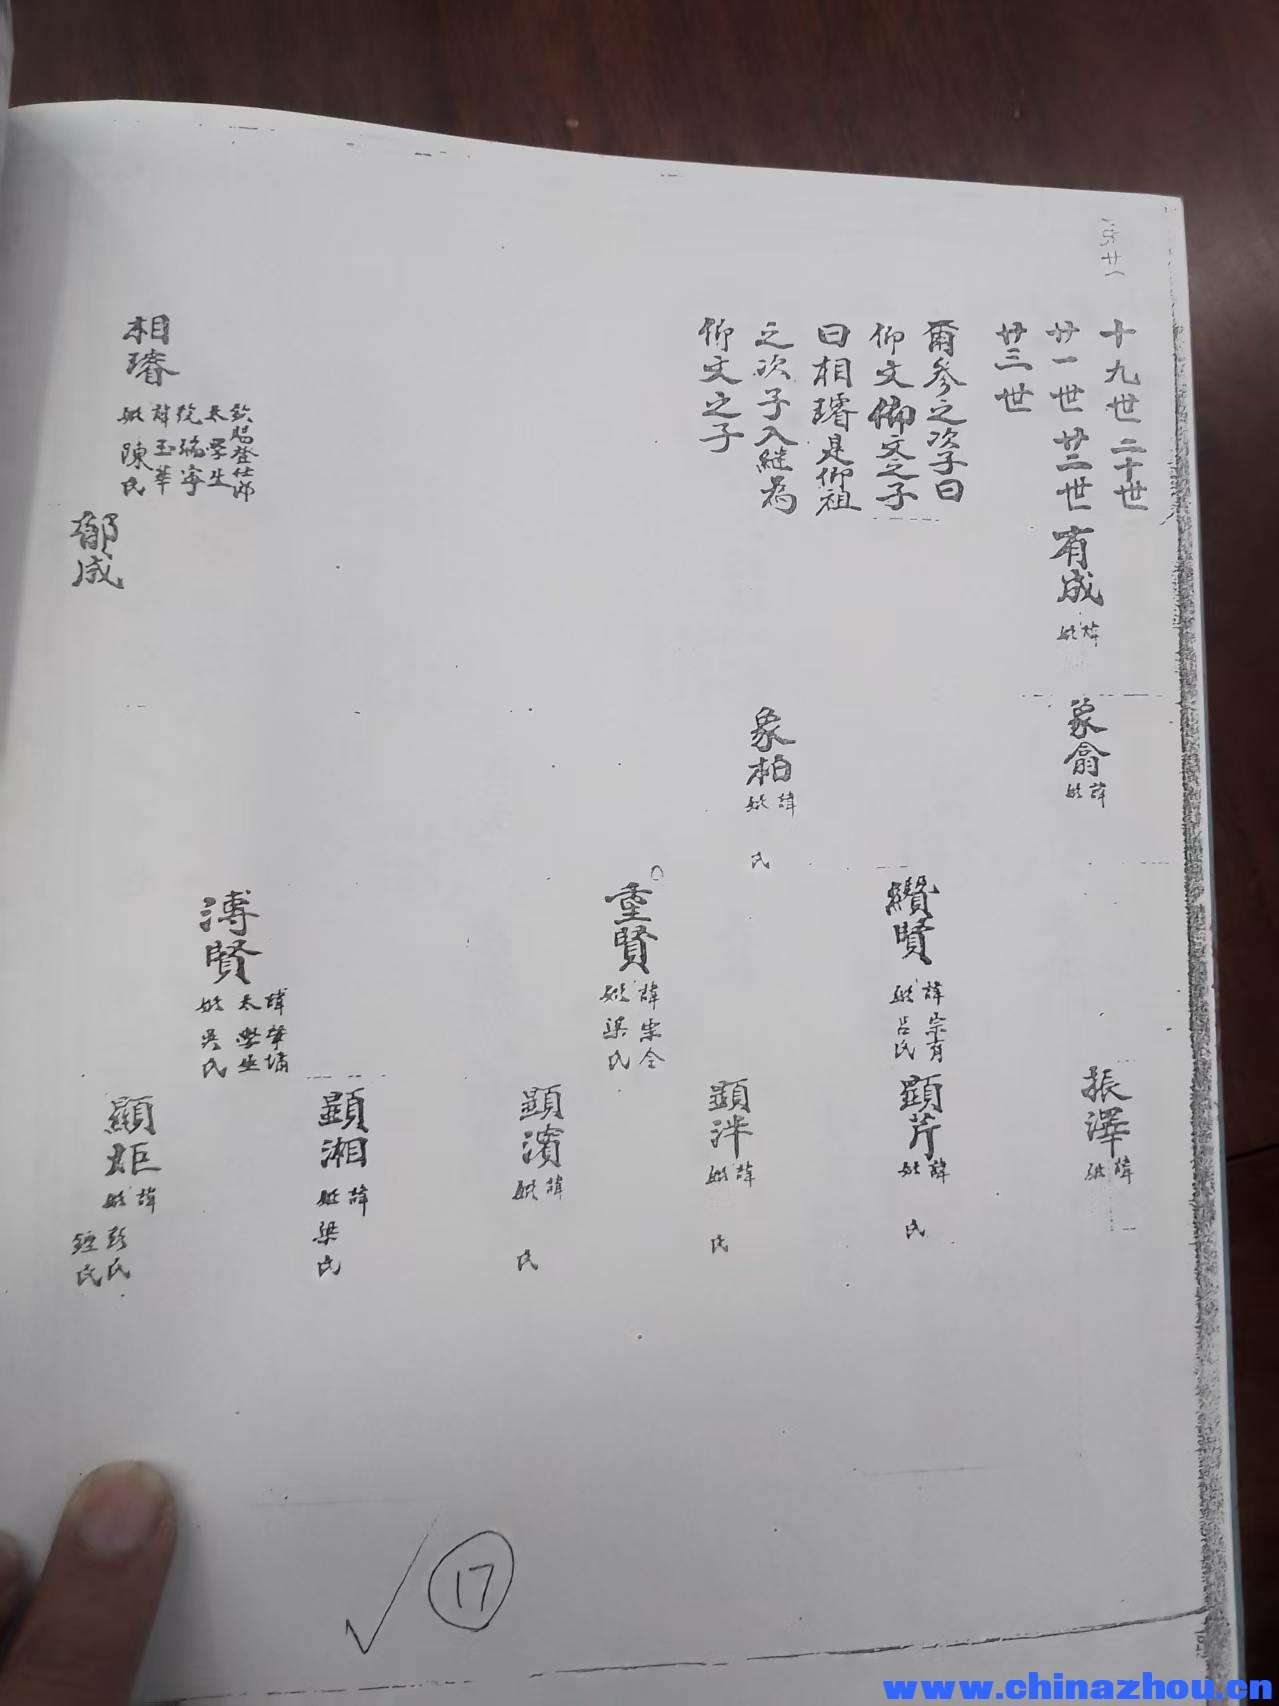 十九世 二十世
廿一世 廿二世
廿三世
爾參之次子曰
仰文 倫文之子
曰相璿是仰祖
之次子入継為
仰文之子
有成
諱
妣
象翕
諱
妣
纘賢
諱宗有
妣呂氏
振澤
諱
妣
顯芹
諱
妣 氏
象柏
諱
妣 氏
重賢
諱宗全
妣梁氏
顯泮
諱
妣 氏
顯濱
諱
妣 氏
顯湘
諱
妣梁氏
溥賢
諱
太學生
妣吳氏
顯炬
諱
妣彭氏
鍾氏
相璿
欽賜登仕郎
太學生
諱玉華
妣陳氏
郁成
17
www.chinazhou.cn